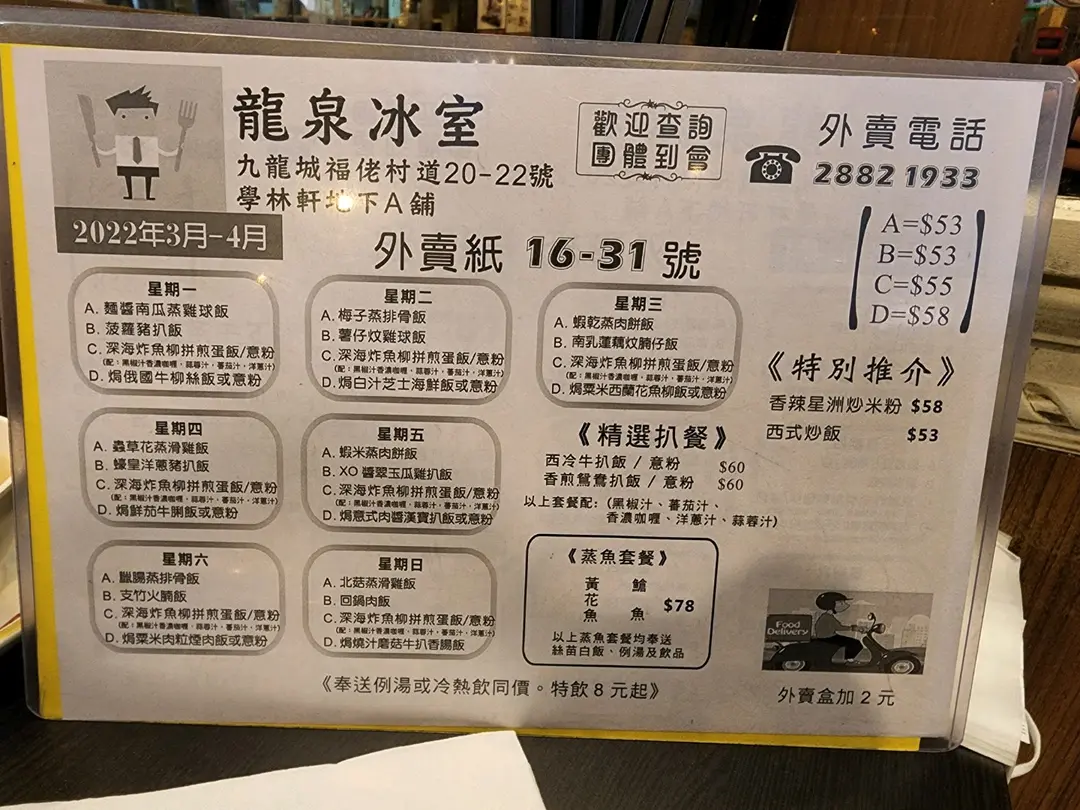 龍泉冰室
九龍城福佬村道20-22號
學林軒地下A舖
歡迎查詢
團體到會
外賣電話
2882 1933
2022年3月-4月
外賣紙 16-31 號
A=$53
B=$53
C=$55
D=$58
星期一
A. 麵醬南瓜蒸雞球飯
B. 菠蘿豬扒飯
C. 深海炸魚柳拼煎蛋飯/意粉
(配：黑椒汁香濃咖喱、蒜蓉汁、蕃茄汁、洋蔥汁)
D. 焗俄國牛柳絲飯或意粉
星期二
A. 梅子蒸排骨飯
B. 薯仔炆雞球飯
C. 深海炸魚柳拼煎蛋飯/意粉
(配：黑椒汁香濃咖喱、蒜蓉汁、蕃茄汁、洋蔥汁)
D. 焗白汁芝士海鮮飯或意粉
星期三
A. 蝦乾蒸肉餅飯
B. 南乳蓮藕炆腩仔飯
C. 深海炸魚柳拼煎蛋飯/意粉
(配：黑椒汁香濃咖喱、蒜蓉汁、蕃茄汁、洋蔥汁)
D. 焗粟米西蘭花魚柳飯或意粉
《特別推介》
香辣星洲炒米粉 $58
西式炒飯 $53
星期四
A. 蟲草花蒸滑雞飯
B. 蠔皇洋蔥豬扒飯
C. 深海炸魚柳拼煎蛋飯/意粉
(配：黑椒汁香濃咖喱、蒜蓉汁、蕃茄汁、洋蔥汁)
D. 焗鮮茄牛脷飯或意粉
星期五
A. 蝦米蒸肉餅飯
B. XO 醬翠玉瓜雞扒飯
C. 深海炸魚柳拼煎蛋飯/意粉
(配：黑椒汁香濃咖喱、蒜蓉汁、蕃茄汁、洋蔥汁)
D. 焗意式肉醬漢寶扒飯或意粉
《精選扒餐》
西冷牛扒飯 / 意粉 $60
香煎鴛鴦扒飯 / 意粉 $60
以上套餐配：(黑椒汁、蕃茄汁、
香濃咖喱、洋蔥汁、蒜蓉汁)
星期六
A. 臘腸蒸排骨飯
B. 支竹火腩飯
C. 深海炸魚柳拼煎蛋飯/意粉
(配：黑椒汁香濃咖喱、蒜蓉汁、蕃茄汁、洋蔥汁)
D. 焗粟米肉粒煙肉飯或意粉
星期日
A. 北菇蒸滑雞飯
B. 回鍋肉飯
C. 深海炸魚柳拼煎蛋飯/意粉
(配：黑椒汁香濃咖喱、蒜蓉汁、蕃茄汁、洋蔥汁)
D. 焗燒汁磨菇牛扒香腸飯
《蒸魚套餐》
黃花魚
鯧魚
$78
以上蒸魚套餐均奉送
絲苗白飯、例湯及飲品
《奉送例湯或冷熱飲同價。特飲 8 元起》
Food
Delivery
外賣盒加 2 元